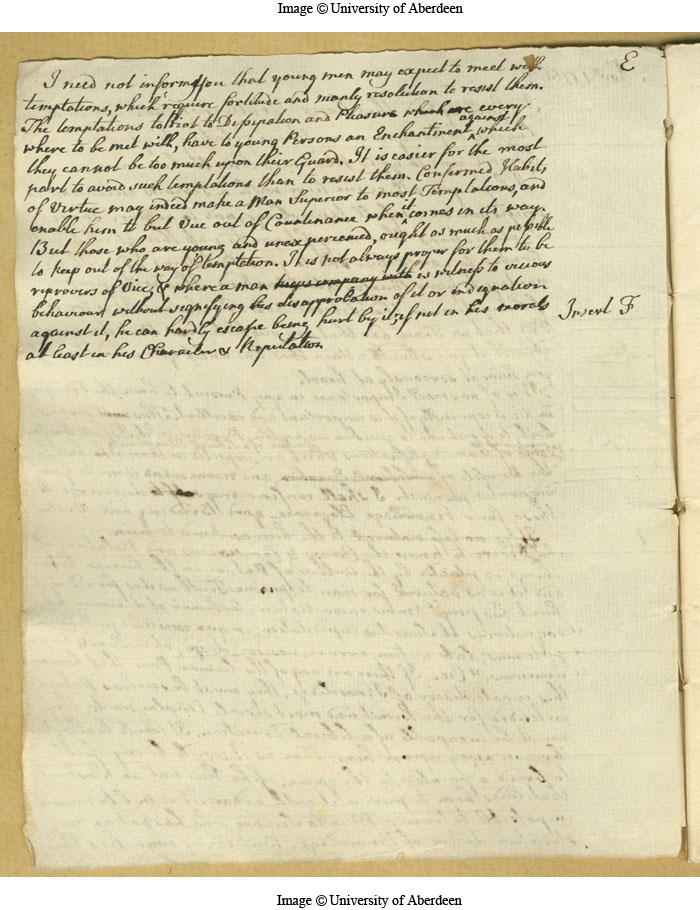 Image © University of Aberdeen
E
I need not inform you that young men may expect to meet with
temptations, which require fortitude and manly resolution to resist them.
The temptations to Dissipation and Pleasure which are every
where to be met with, have to young Persons an Enchantment against which
they cannot be too much upon their Guard. It is easier for the most
part to avoid such temptations than to resist them. Confirmed Habits
of Virtue may indeed make a Man Superior to most Temptations, and
enable him to put Vice out of Countenance when it comes in its way.
But those who are young and unexperienced, ought as much as possible
to keep out of the way of temptation. It is not always proper for them to be
reprovers of Vice, & where a man keeps company with is witness to vicious
behaviour without signifying his disapprobation of it or indignation
against it, he can hardly escape being hurt by it, if not in his morals
Insert F
at least in his Character & Reputation
Image © University of Aberdeen